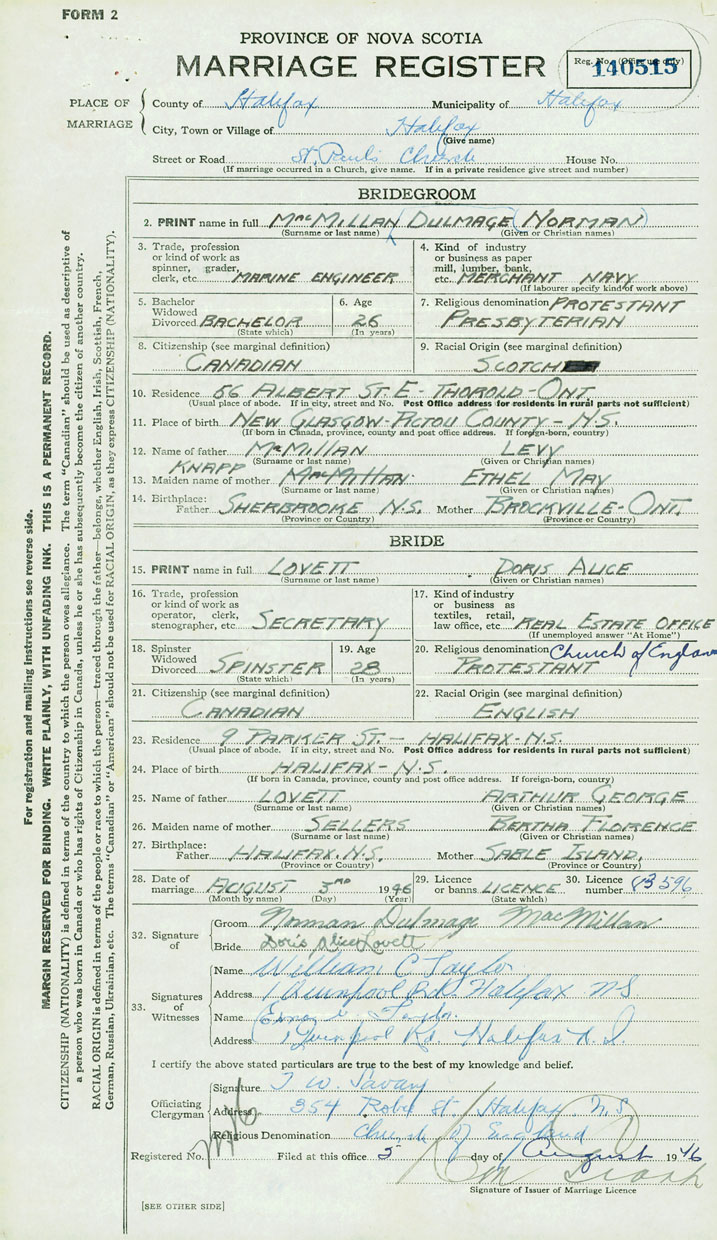 FORM 2
PROVINCE OF NOVA SCOTIA
MARRIAGE REGISTER
Reg. No. (Office use only)
140515
PLACE OF MARRIAGE
County of Halifax Municipality of Halifax
City, Town or Village of Halifax
(Give name)
Street or Road St. Paul's Church House No.
(If marriage occurred in a Church, give name. If in a private residence give street and number)
BRIDEGROOM
2. PRINT name in full MacMillan (Dulmage (Norman)
(Surname or last name) (Given or Christian names)
3. Trade, profession or kind of work as spinner, grader, clerk, etc. MARINE ENGINEER
4. Kind of industry or business as paper mill, lumber, bank, etc. MERCHANT NAVY
(If labourer specify kind of work above)
5. Bachelor Widowed Divorced BACHELOR
(State which)
6. Age 26
(In years)
7. Religious denomination PROTESTANT
PRESBYTERIAN
8. Citizenship (see marginal definition)
CANADIAN
9. Racial Origin (see marginal definition)
SCOTCH
10. Residence 56 ALBERT ST. E - THOROLD - ONT.
(Usual place of abode. If in city, street and No. Post Office address for residents in rural parts not sufficient)
11. Place of birth NEW GLASGOW - PICTOU COUNTY - N.S.
(If born in Canada, province, county and post office address. If foreign-born, country)
12. Name of father McMILLAN LEVY
(Surname or last name) (Given or Christian names)
KNAPP
13. Maiden name of mother MacMillan ETHEL MAY
(Surname or last name) (Given or Christian names)
14. Birthplace: Father SHERBROOKE N.S. Mother BROCKVILLE - ONT.
(Province or Country) (Province or Country)
BRIDE
15. PRINT name in full LOVETT DORIS ALICE
(Surname or last name) (Given or Christian names)
16. Trade, profession or kind of work as operator, clerk, stenographer, etc. SECRETARY
17. Kind of industry or business as textiles, retail, law office, etc. REAL ESTATE OFFICE
(If unemployed answer "At Home")
18. Spinster Widowed Divorced SPINSTER
(State which)
19. Age 28
(In years)
20. Religious denomination Church of England
PROTESTANT
21. Citizenship (see marginal definition)
CANADIAN
22. Racial Origin (see marginal definition)
ENGLISH
23. Residence 9 PARKER ST. - HALIFAX - N.S.
(Usual place of abode. If in city, street and No. Post Office address for residents in rural parts not sufficient)
24. Place of birth HALIFAX - N.S.
(If born in Canada, province, county and post office address. If foreign-born, country)
25. Name of father LOVETT ARTHUR GEORGE
(Surname or last name) (Given or Christian names)
26. Maiden name of mother SELLERS BERTHA FLORENCE
(Surname or last name) (Given or Christian names)
27. Birthplace: Father HALIFAX. N.S. Mother SABLE ISLAND.
(Province or Country) (Province or Country)
28. Date of marriage AUGUST 3RD 1946
(Month by name) (Day) (Year)
29. Licence or banns LICENCE
(State which)
30. Licence number 596
32. Signature of
Groom Norman Dulmage MacMillan
Bride Doris Alice Lovett
33. Signatures of Witnesses
Name William C Taylor
Address 1 Liverpool Rd. Halifax NS
Name
Address 1 Liverpool Rd. Halifax N.S.
I certify the above stated particulars are true to the best of my knowledge and belief.
Officiating Clergyman
Signature T. W. Savary
Address 354 Robie St. Halifax, N.S
Religious Denomination Church of England
Registered No. Filed at this office 5 day of August 1946
Signature of Issuer of Marriage Licence
[SEE OTHER SIDE]
For registration and mailing instructions see reverse side.
MARGIN RESERVED FOR BINDING. WRITE PLAINLY, WITH UNFADING INK. THIS IS A PERMANENT RECORD.
CITIZENSHIP (NATIONALITY) is defined in terms of the country to which the person owes allegiance. The term "Canadian" should be used as descriptive of
a person who was born in Canada or who has rights of Citizenship in Canada, unless he or she has subsequently become the citizen of another country.
RACIAL ORIGIN is defined in terms of the people or race to which the person—traced through the father—belongs, whether English, Irish, Scottish, French,
German, Russian, Ukrainian, etc. The terms "Canadian" or "American" should not be used for RACIAL ORIGIN, as they express CITIZENSHIP (NATIONALITY).